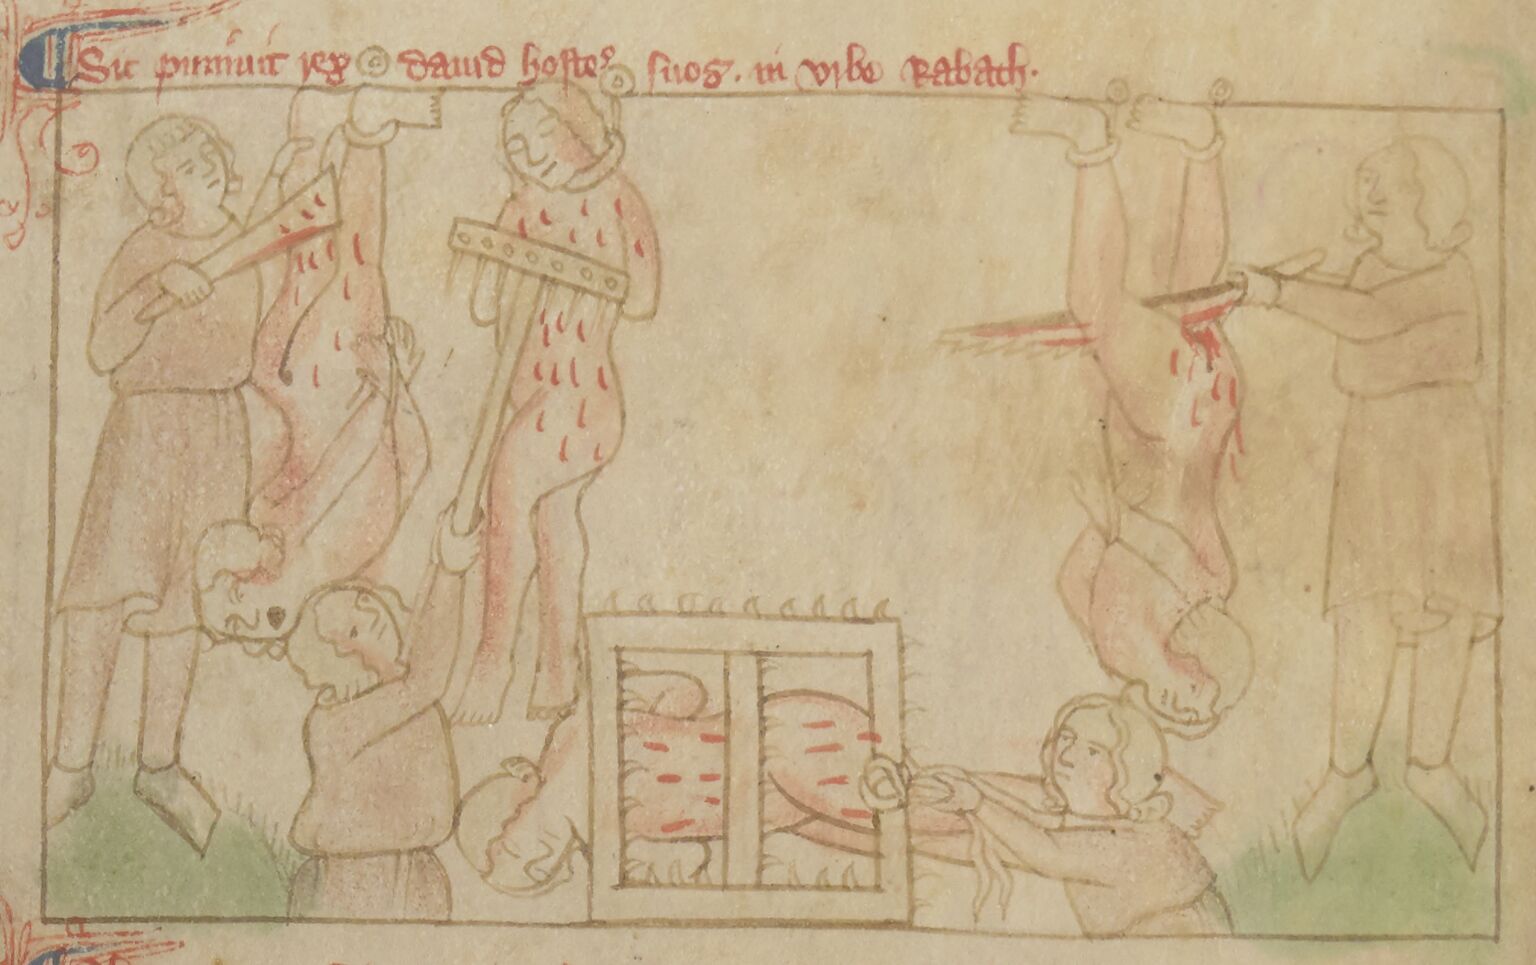 ¶ Sic puniuit rex dauid hostes suos. in vrbe Rabath.